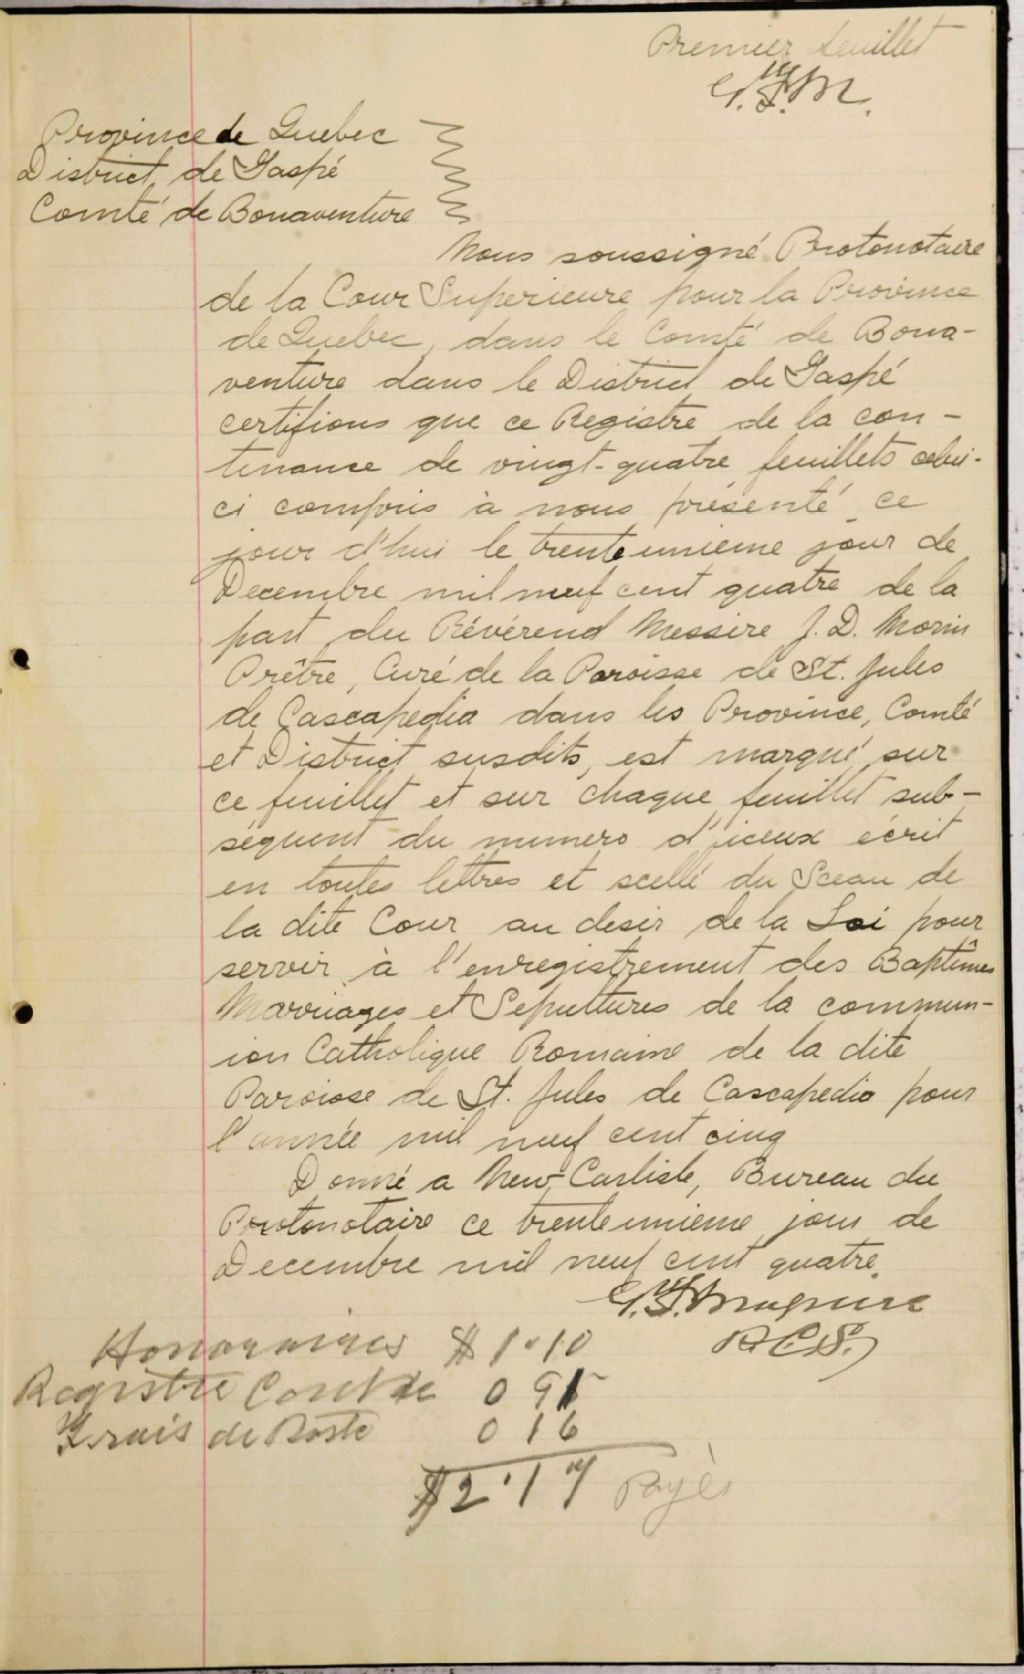 Premier feuillet
W.F.M.
Province de Quebec
District de Gaspé
Comté de Bonaventure
Nous soussigné Protonotaire
de la Cour Superieure pour la Province
de Quebec, dans le Comté de Bona-
venture dans le District de Gaspé
certifions que ce Registre de la con-
tenance de vingt-quatre feuillets celui-
ci compris à nous présenté ce
jour d'hui le trente unieme jour de
Decembre mil neuf cent quatre de la
part du Révérend Messire J. D. Morin
Prêtre, Curé de la Paroisse de St. Jules
de Cascapedia dans les Province, Comté
et District susdits, est marqué sur
ce feuillet et sur chaque feuillet sub-
séquent du numero d'iceux écrit
en toutes lettres et scellé du Sceau de
la dite Cour au desir de la Loi pour
servir à l'enregistrement des Baptêmes
Marriages et Sepultures de la commun-
ion Catholique Romaine de la dite
Paroisse de St. Jules de Cascapedia pour
l'année mil neuf cent cinq
Donné a New Carlisle, Bureau du
Protonotaire ce trente unieme jour de
Decembre mil neuf cent quatre.
P.C.S.
Honoraires $ 1.10
Registre 0 91
Frais de Poste 0 16
$2.17 Payès